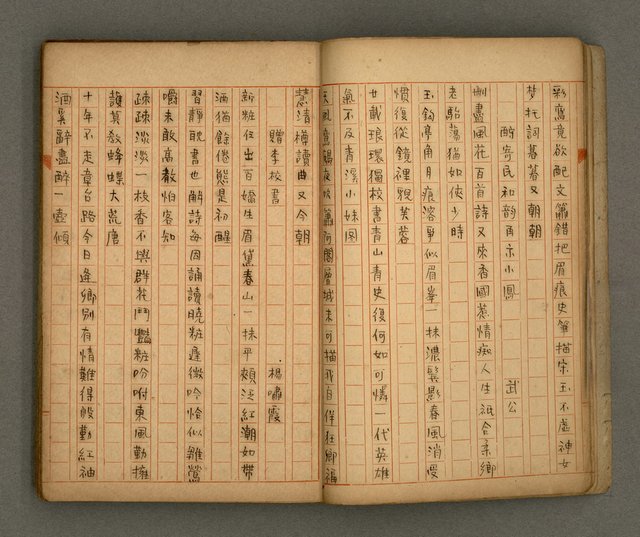 彩鸞竟欲配文簫錯把眉痕史筆描宋玉不處神女
梦托詞暮暮又朝朝
酬寄民和韵角示小鳳 武公
刪盡風花百首詩又來香國惹情痴人生祇合柔鄉
老駘蕩猶如使少時
玉鈎亭角月痕溶爭似眉峯一抹濃鬂影春風消受
慣復從鏡裡覌芙蓉
廿載琅環獨校書青山青史復何如可憐一代英雄
氣不及青溪小妹图
未可描我自佯狂卿編
慧清樽讀曲又今朝
贈李校書 楊嘯霞
新粧任出百嬌生眉黛春山一抹平頰泛紅潮如帶
酒猶餘倦態是初醒
習靜耽書也解詩每因誦讀曉粧遲微吟恰似雛鶯
囀未敢高教怕客知
疎疎淡淡一枝香不與群花鬥艷粧吩咐東風勤擁
護莫教蜂蝶大荒唐
十年不走章台路今日逢卿別有情難得慇勤紅袖
酒奚辭盡醉一壺傾